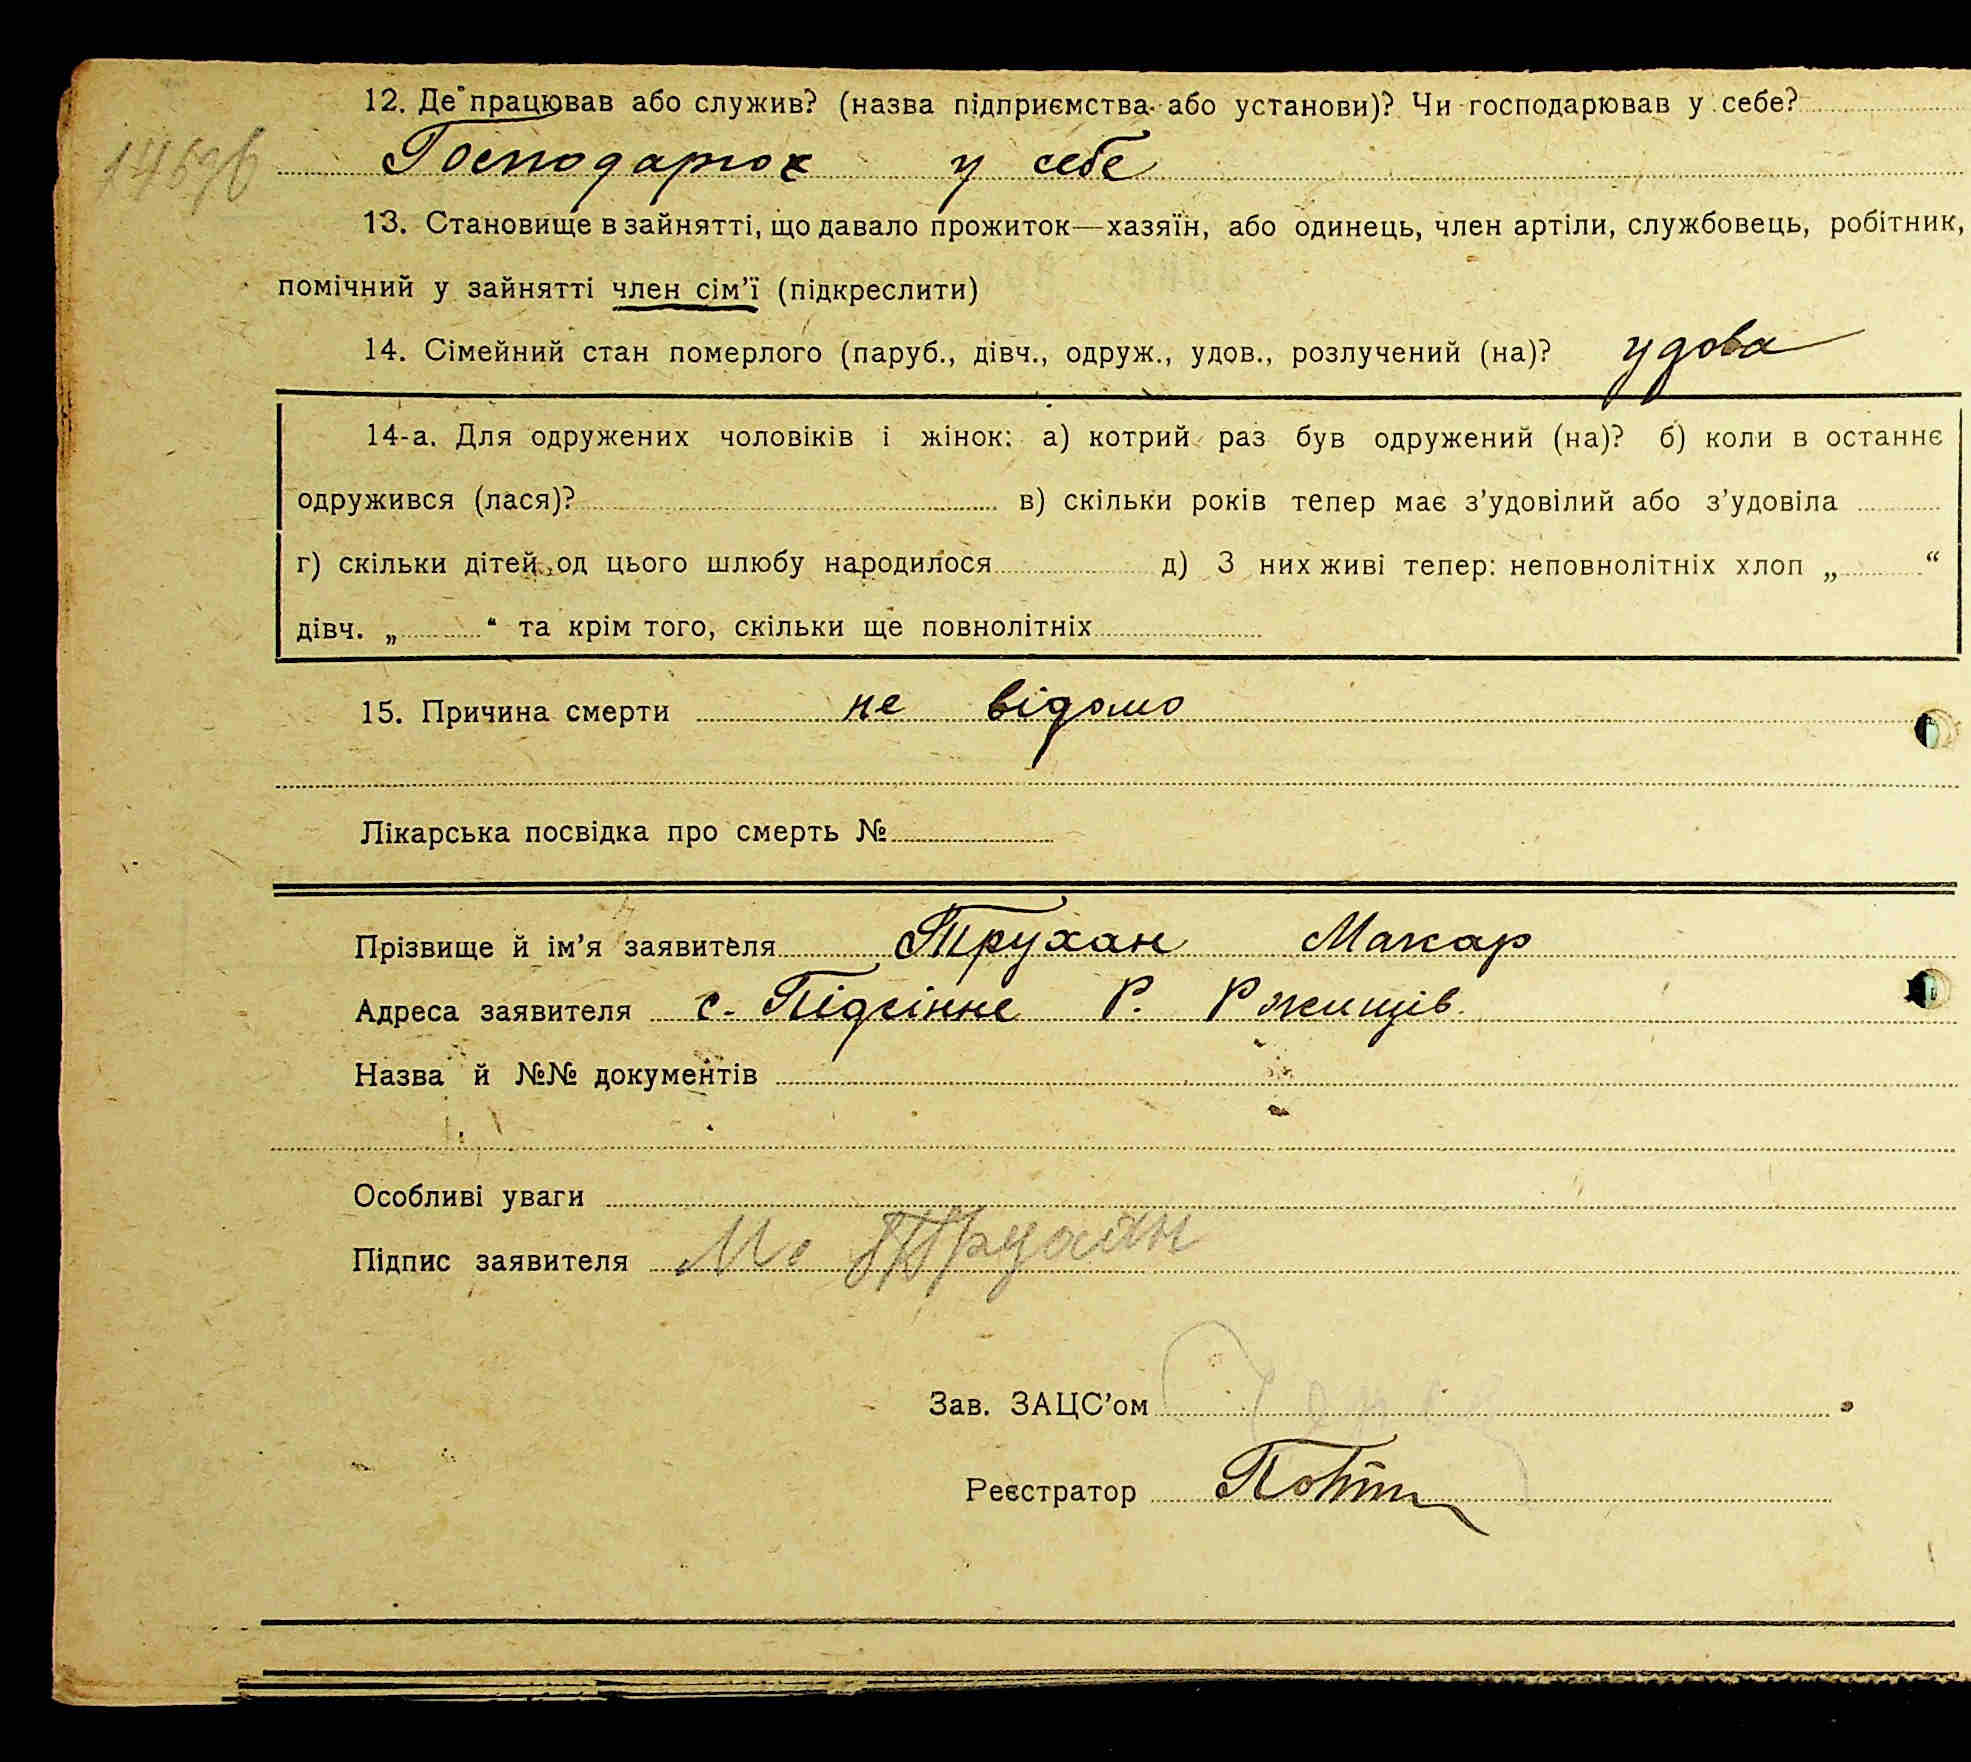 12. Де працював або служив? (назва підприємства або установи)? Чи господарював у себе?
Господарює у себе
13. Становище в зайнятті, що давало прожиток—хазяїн, або одинець, член артіли, службовець, робітник,
помічний у зайнятті член сім’ї (підкреслити)
14. Сімейний стан померлого (паруб., дівч., одруж., удов., розлучений (на)? удова
14-а. Для одружених чоловіків і жінок: а) котрий раз був одружений (на)? б) коли в останнє
одружився (лася)? в) скільки років тепер має з’удовілий або з’удовіла
г) скільки дітей од цього шлюбу народилося д) З них живі тепер: неповнолітніх хлоп „ “
дівч. „ “ та крім того, скільки ще повнолітніх
15. Причина смерти не відомо
Лікарська посвідка про смерть №
Прізвище й ім’я заявителя Трухан Макар
Адреса заявителя с. Підсінне Р. Ржищів.
Назва й №№ документів
Особливі уваги
Підпис заявителя
Зав. ЗАЦС’ом
Реєстратор